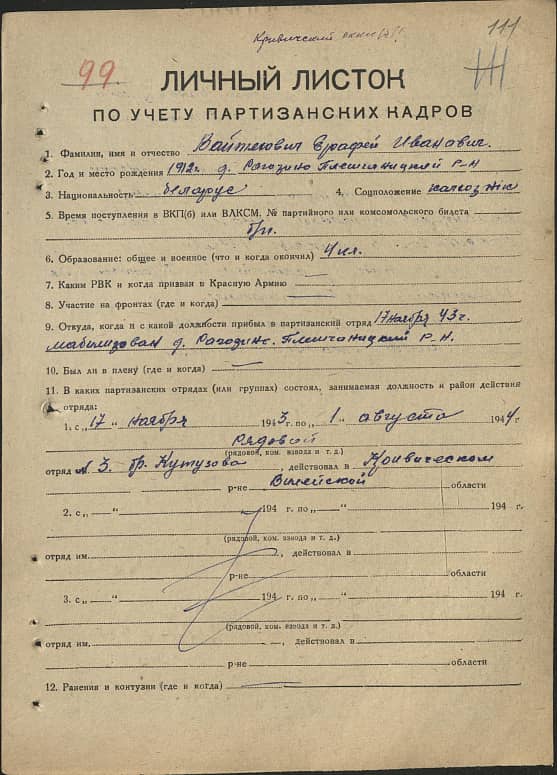 111
Кривичский
99
ЛИЧНЫЙ ЛИСТОК
ПО УЧЕТУ ПАРТИЗАНСКИХ КАДРОВ
1. Фамилия, имя и отчество Вайтехович Ерафей Иванович.
2. Год и место рождения 1912г. д. Рагозино Плещеницкий Р-Н
3. Национальность белорус 4. Соцположение калхозник
5. Время поступления в ВКП(б) или ВЛКСМ, № партийного или комсомольского билета
б/п.
6. Образование: общее и военное (что и когда окончил) 4 кл.
7. Каким РВК и когда призван в Красную Армию
8. Участие на фронтах (где и когда)
9. Откуда, когда и с какой должности прибыл в партизанский отряд 17 ноября 43 г.
мабилизован д. Рагодино. Плещаницкий Р-Н.
10. Был ли в плену (где и когда)
11. В каких партизанских отрядах (или группах) состоял, занимаемая должность и район действия
отряда:
1. с „17" ноября 1943 г. по „1" августа 1944 г.
рядовой
(рядовой, ком. взвода и т. д.)
отряд N 3. бр. Кутузова, действовал в Кривическом
р-не Вилейской области
2. с „ " 194 г. по „ " 194 г.
(рядовой, ком. взвода и т. д.)
отряд им. , действовал в
р-не области
3. с „ " 194 г. по „ " 194 г.
(рядовой, ком. взвода и т. д.)
отряд им. , действовал в
р-не области
12. Ранения и контузии (где и когда)